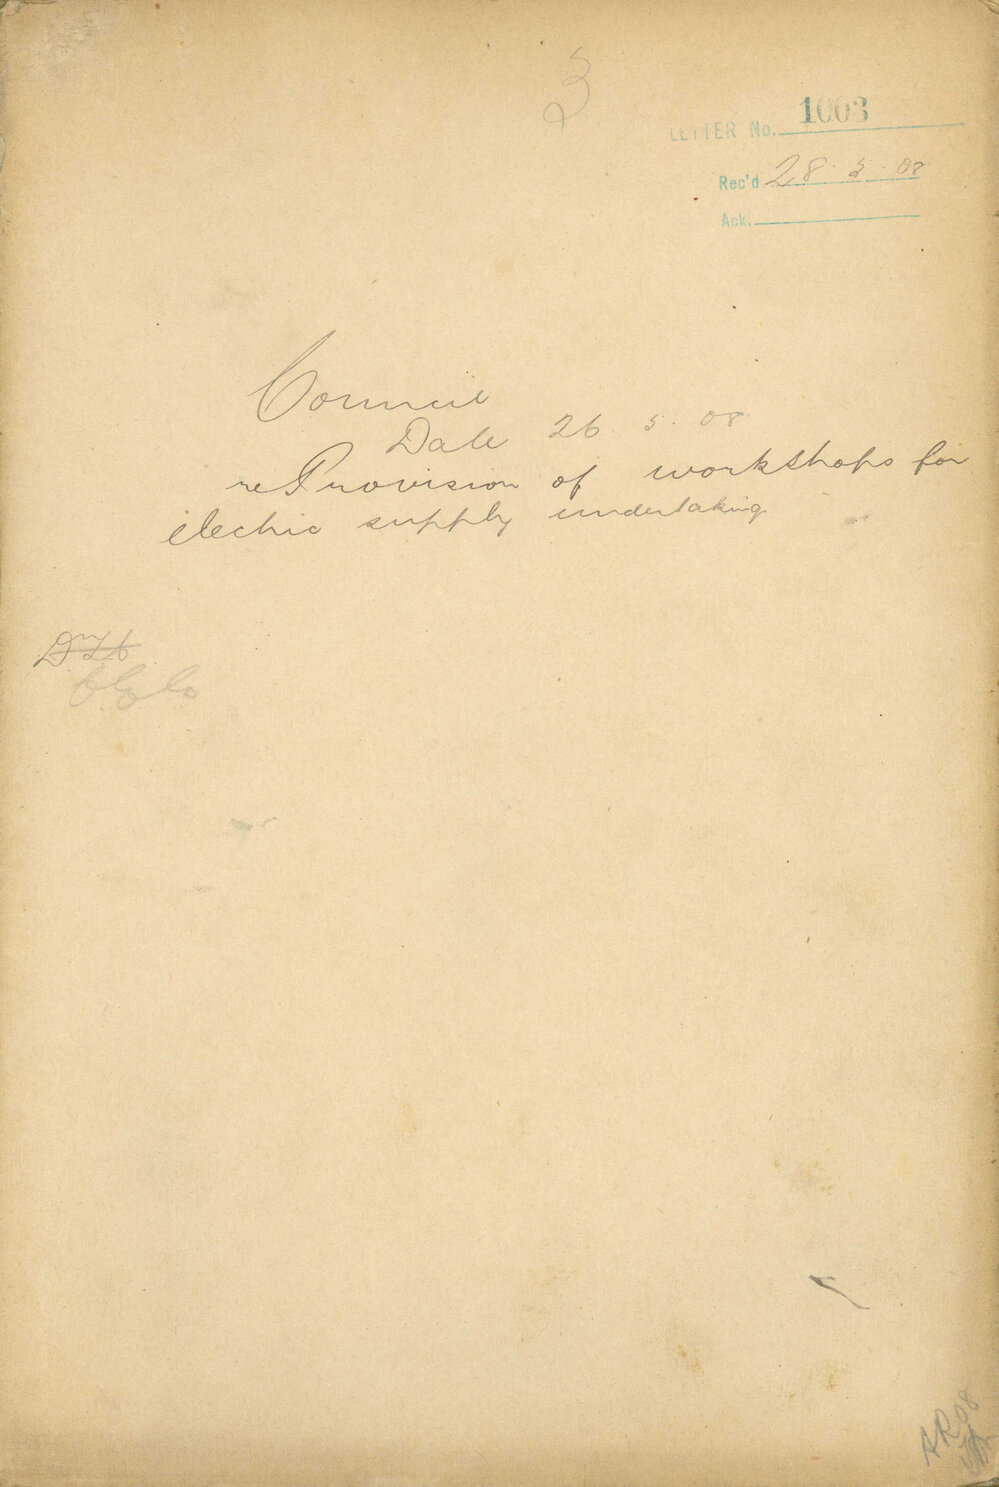 3
LETTER No. 1003
Rec'd 28. 5. 08
Ack.
Council
Date 26. 5. 08.
re Provision of workshops for
electric supply undertaking
AR08